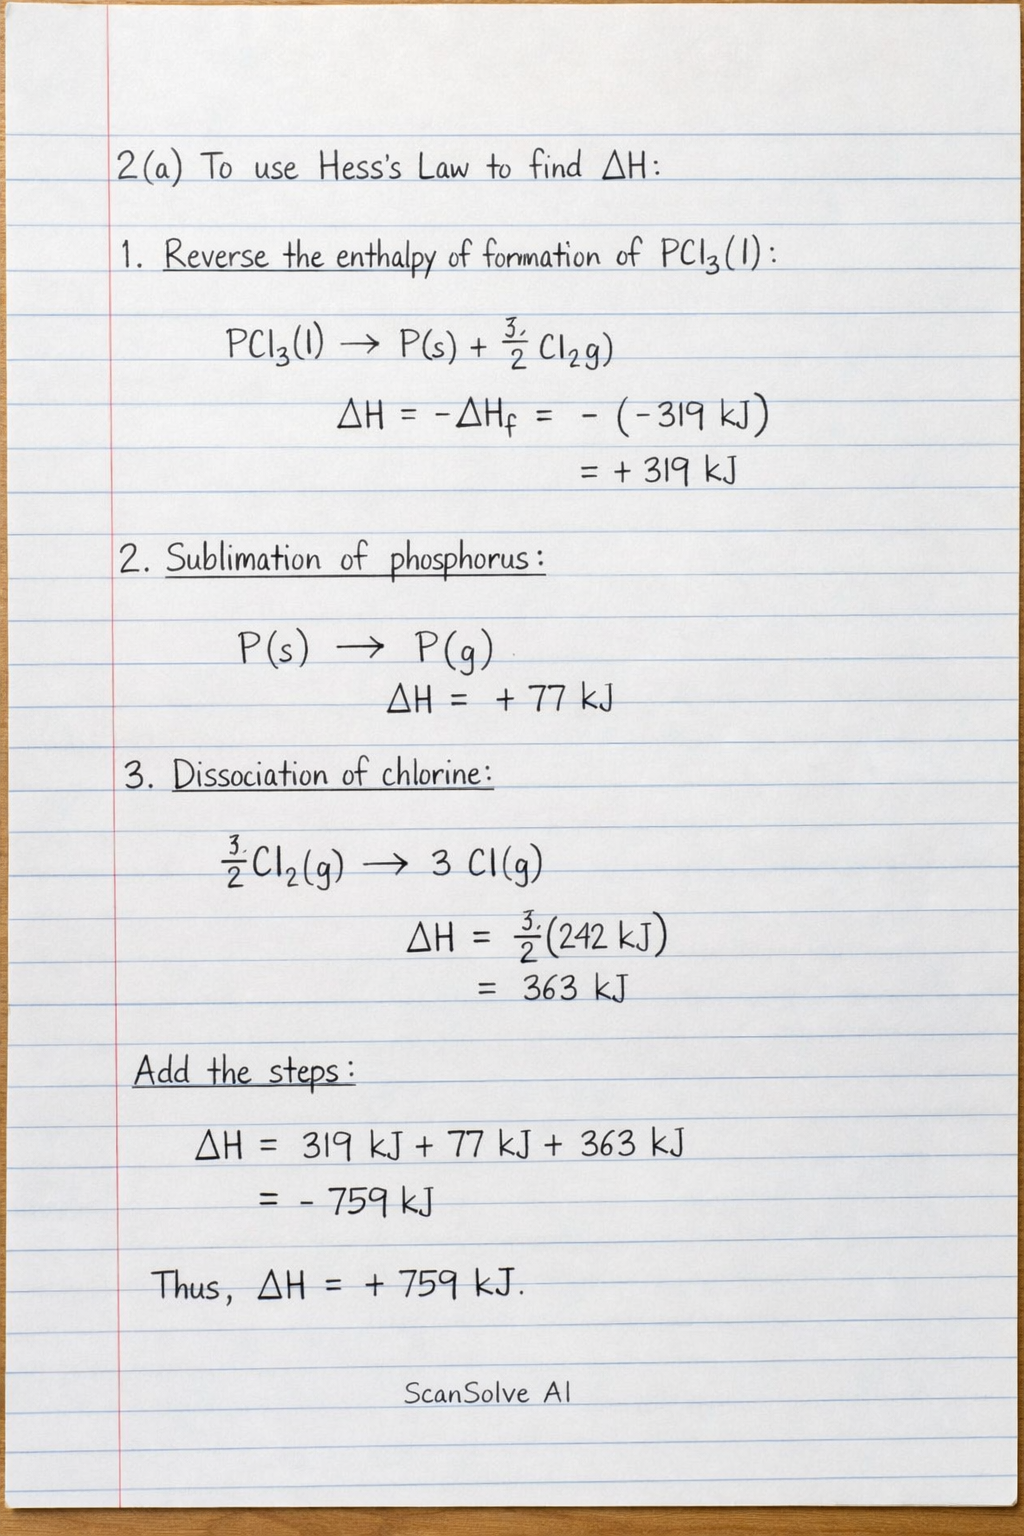 2(a) To use Hess's Law to find ΔH:
1. Reverse the enthalpy of formation of PCl₃(l):
PCl₃(l) → P(s) + 3/2 Cl₂g)
ΔH = -ΔHf = - (-319 kJ)
= + 319 kJ
2. Sublimation of phosphorus:
P(s) → P(g)
ΔH = + 77 kJ
3. Dissociation of chlorine:
3/2 Cl₂(g) → 3 Cl(g)
ΔH = 3/2 (242 kJ)
= 363 kJ
Add the steps:
ΔH = 319 kJ + 77 kJ + 363 kJ
= - 759 kJ
Thus, ΔH = + 759 kJ.
ScanSolve AI